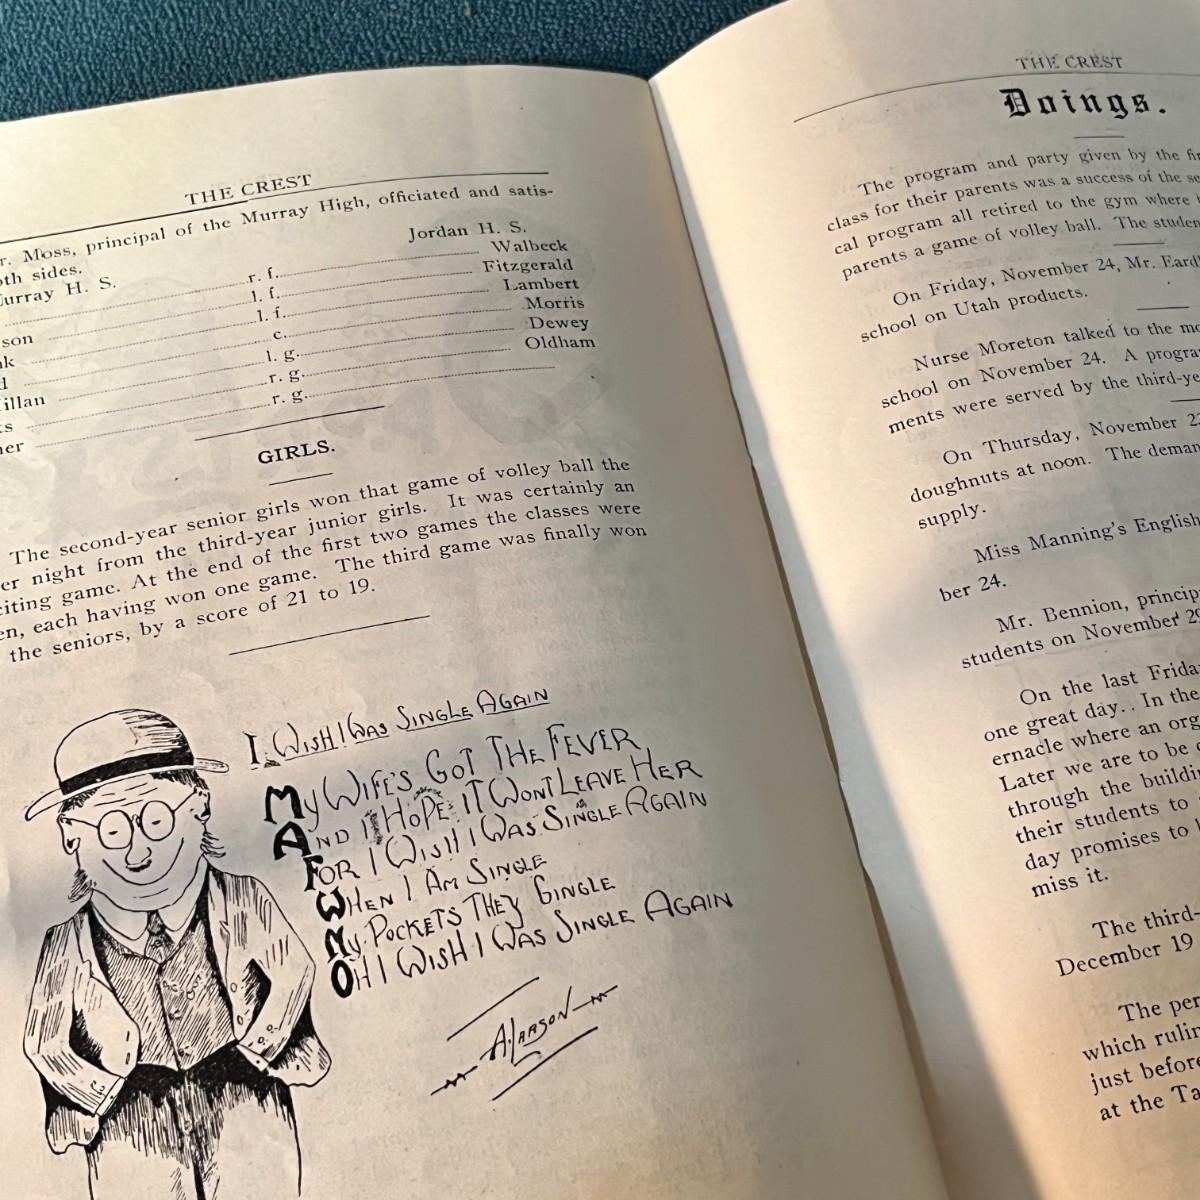 THE CREST
r. Moss, principal of the Murray High, officiated and satis-
oth sides.
urray H. S.
Jordan H. S.
r. f. Walbeck
son l. f. Fitzgerald
k l. f. Lambert
d c. Morris
illan l. g. Dewey
ts r. g. Oldham
ner r. g.
GIRLS.
The second-year senior girls won that game of volley ball the
er night from the third-year junior girls. It was certainly an
citing game. At the end of the first two games the classes were
en, each having won one game. The third game was finally won
the seniors, by a score of 21 to 19.
I WISH I WAS SINGLE AGAIN
MY WIFE'S GOT THE FEVER
AND I HOPE IT WONT LEAVE HER
FOR I WISH I WAS SINGLE AGAIN
WHEN I AM SINGLE
MY POCKETS THEY GINGLE
OH I WISH I WAS SINGLE AGAIN
A. LARSON
THE CREST
Doings.
The program and party given by the fir
class for their parents was a success of the se
cal program all retired to the gym where
parents a game of volley ball. The studen
On Friday, November 24, Mr. Eard
school on Utah products.
Nurse Moreton talked to the mo
school on November 24. A progra
ments were served by the third-ye
On Thursday, November 23
doughnuts at noon. The deman
supply.
Miss Manning's English
ber 24.
Mr. Bennion, princip
students on November 29
On the last Frida
one great day.. In the
ernacle where an org
Later we are to be
through the buildin
their students to
day promises to
miss it.
The third-
December 19
The per
which rulin
just before
at the Ta